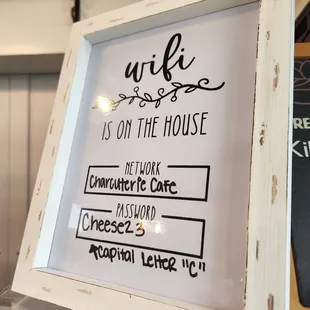 wifi
IS ON THE HOUSE
NETWORK
Charcuterie Cafe
PASSWORD
Cheese23
*Capital Letter "C"